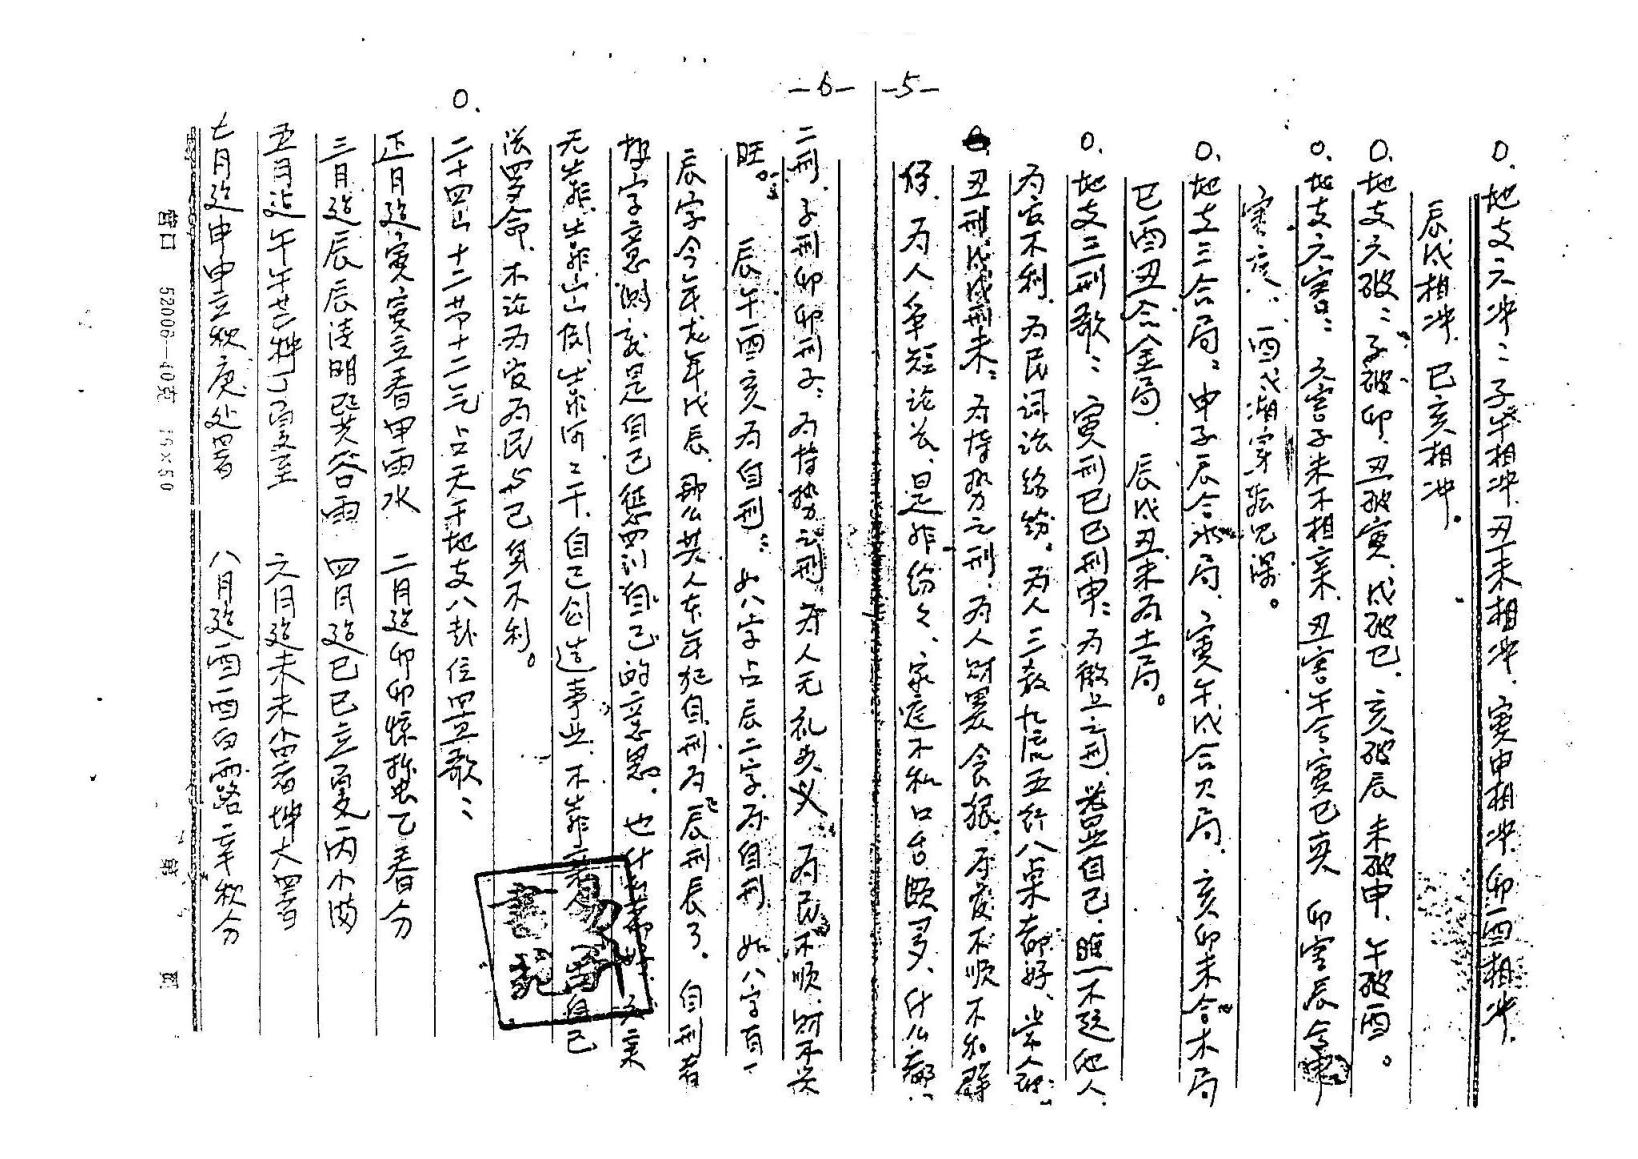 —5—
○.地支六冲：子午相冲.丑未相冲.寅申相冲.卯酉相冲.
辰戌相冲.巳亥相冲.
○.地支六破：子破卯.丑破寅.戌破巳.亥破辰.未破申.午破酉。
○.地支六害：六害子未不相亲.丑害午兮寅巳 卯害辰兮申
害亥、酉戌
○.地支三合局：申子辰合水局.寅午戌合火局.亥卯未合木局
巳酉丑合金局.辰戌丑未为土局。
○.地支三刑歌：寅刑巳巳刑申：为之刑.自己.不起他人.
为官不利.为民词讼纷纷.为人三教九流五行八果都好、
丑刑戌戌刑未：为恃势之刑.为人财贪狠.不顺不
为人争短论长、是非纷纷、家庭不和口台颇多、什么都
—6—
二刑.子刑卯卯刑子：为恃势之刑.为人无礼失义.为民不顺.财不
旺。 辰午酉亥为自刑：如八字占辰二字.为自刑.如八字有一
辰字今年龙年戊辰.那么其人本年犯自刑.为辰刑辰了.自刑者
按字意测就是自己惩罚自己的意思.也什么都
无靠.靠山山倒.靠河河干.自己创造事业.不靠自己
不论为官为民与己身不利。
○.二十四山十二节十二气占天干地支八卦位置歌：
正月建寅寅立春甲雨水 二月建卯卯惊蛰乙春分
三月建辰辰清明巽谷雨 四月建巳巳立夏丙小满
五月建午午芒种丁夏至 六月建未未小暑坤大暑
七月建申申立秋庚处署 八月建酉酉白露辛秋分
52006—40页 19×50